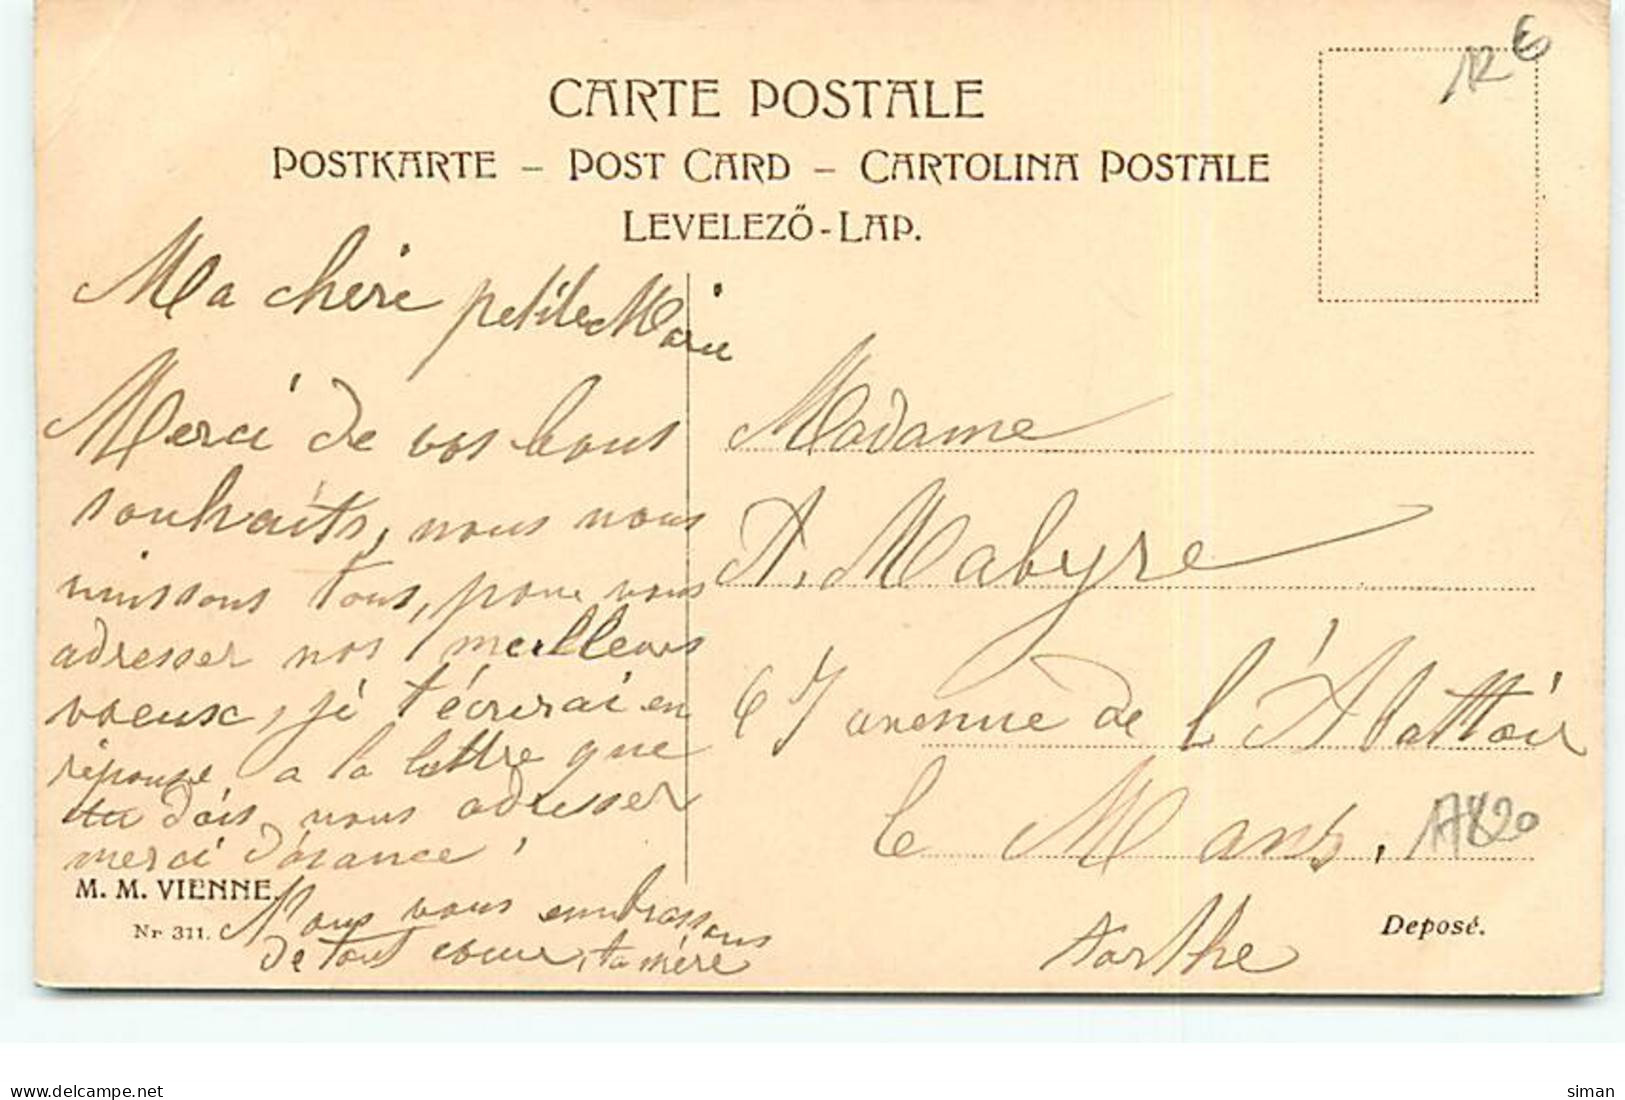 12 €
CARTE POSTALE
POSTKARTE – POST CARD – CARTOLINA POSTALE
LEVELEZŐ-LAP.
Ma chère petite Marie
Merci de vos bons
souhaits, nous nous
unissons tous, pour vous
adresser nos meilleurs
voeux, je t'écrirai en
réponse a la lettre que
tu dois nous adresser
merci d'avance !
Nous vous embrassons
de tout coeur, ta mère
M. M. VIENNE.
Nr 311.
Madame
A. Mabyre
67 avenue de l'Abattoir
le Mans,
Sarthe
17820
Deposé.
www.delcampe.net
siman